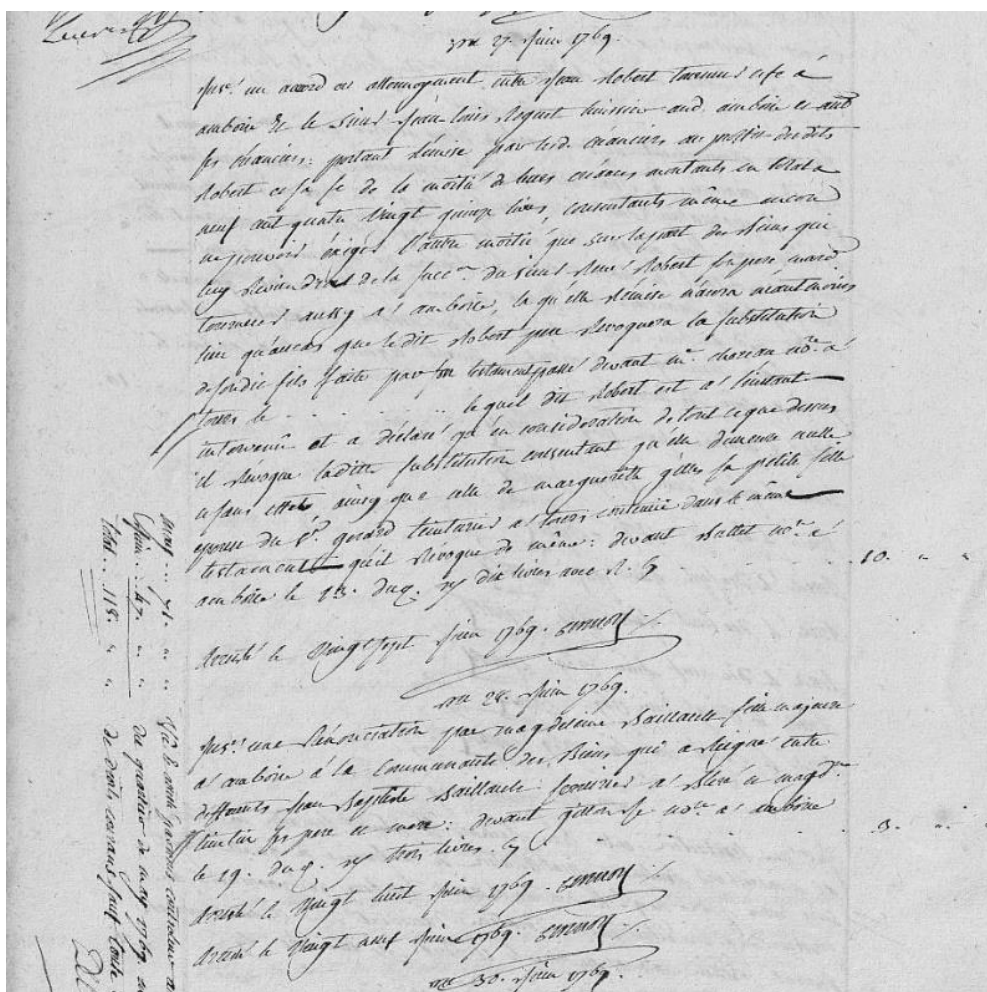 Du 27. Juin 1769.
Inse.^t un accord ou attermoyement entre Jean Robert tanneur et fe a
amboise et le sieur Jean Louis Roguet huissier aud. amboise et aut
ses creanciers: portant Remise par lesd. creanciers au proffit desdits
Robert et sa fe de la moitié de leurs creances montants en total a
neuf cent quatre Vingt quinze livres, consentants même encore
ne pouvoir exiger l'autre moitié que sur la part des Biens qui
luy Reviendront de la succ.^on du sieur René Robert son pere, mard
tanneur aussy a amboise, la qu'elle Remise n'aura neantmoins
lieu qu'au cas que ledit Robert pere Revoquera la substitution
de sondit fils faite par son testament passé devant m.^e no.^re a
tours le . . . . . . lequel dit Robert est a l'instant
intervenu et a déclaré qu'en consideration de tout ce que dessus
il Revoque laditte substitution consentant qu'elle demeure nulle
et sans effets ainsy que celle de marguerite gilles sa petite fille
epouse du S.^r gerard teinturier a tours contenue dans le même
testament qu'il Revoque de même: devant Rattet no.^re a
amboise le 23. dud. Rs dix livres 10. " "
Arresté le Vingt sept Juin 1769.
Du 28. Juin 1769.
Inse.^t une Rénonciation par magdeleine Baillault fille majeure
a amboise a la Communauté des Biens qui a Reigné entre
deffunts Jean Baptiste Baillault a Bleré et magd.^ne
ses pere et mere: devant no.^re a amboise
le 19. dud. Rs trois livres. 3. " "
Arresté le Vingt huit Juin 1769.
Arresté le Vingt neuf Juin 1769.
Du 30. Juin 1769.
may ... 71. " "
Juin ... 47. " "
total ... 118. " "
Vu le
du quartier de may 1769
de droits